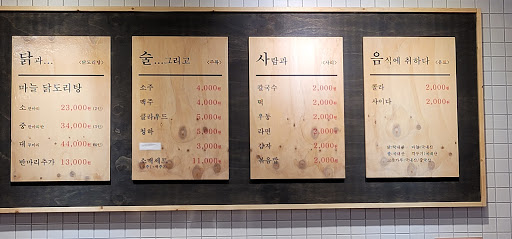 닭과... <닭도리탕>
마늘 닭도리탕
소 한마리 23,000원 (2인)
중 한마리반 34,000원 (3인)
대 두마리 44,000원 (4인)
반마리추가 13,000원
술...그리고 <주류>
소주 4,000원
맥주 4,000원
클라우드 5,000원
청하
3,000원
소맥세트 11,000원
사람과 <사리>
칼국수 2,000원
떡 2,000원
우동 2,000원
라면 2,000원
감자 2,000원
볶음밥 2,000원
음식에 취하다 <음료>
콜라 2,000원
사이다 2,000원